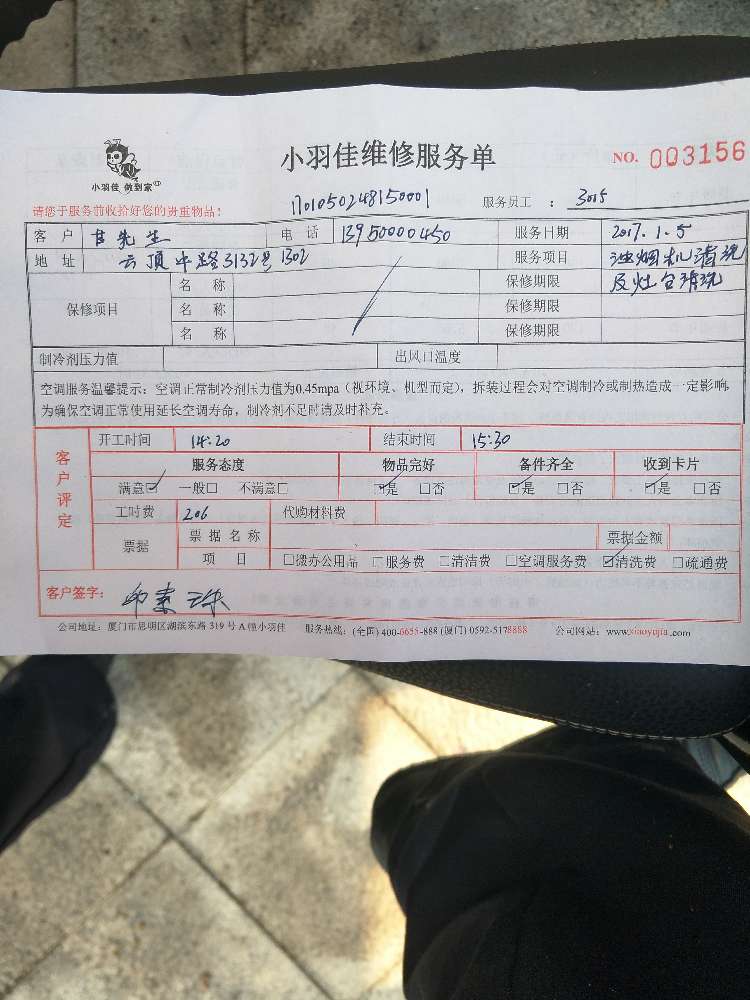 小羽佳 做到家
小羽佳维修服务单
NO. 003156
请您于服务前收拾好您的贵重物品!
1701050248150001
服务员工 : 3015
客户 甘先生 电话 13950000450 服务日期 2017.1.5
地址 云顶中路3132号1302 服务项目 油烟机清洗
及灶台清洗
保修项目
名称 保修期限
名称 保修期限
名称 保修期限
制冷剂压力值 出风口温度
空调服务温馨提示:空调正常制冷剂压力值为0.45mpa(视环境、机型而定),拆装过程会对空调制冷或制热造成一定影响,
为确保空调正常使用延长空调寿命,制冷剂不足时请及时补充。
客户评定
开工时间 14:20 结束时间 15:30
服务态度 物品完好 备件齐全 收到卡片
满意☑ 一般□ 不满意□ ☑是 □否 ☑是 □否 ☑是 □否
工时费 206 代购材料费
票据 票据名称 票据金额
项目 □搬办公用品 □服务费 □清洁费 □空调服务费 ☑清洗费 □疏通费
客户签字:
公司地址:厦门市思明区湖滨东路319号A幢小羽佳 服务热线:(全国)400-6655-888(厦门)0592-5178888 公司网站:www.xiaoyujia.com